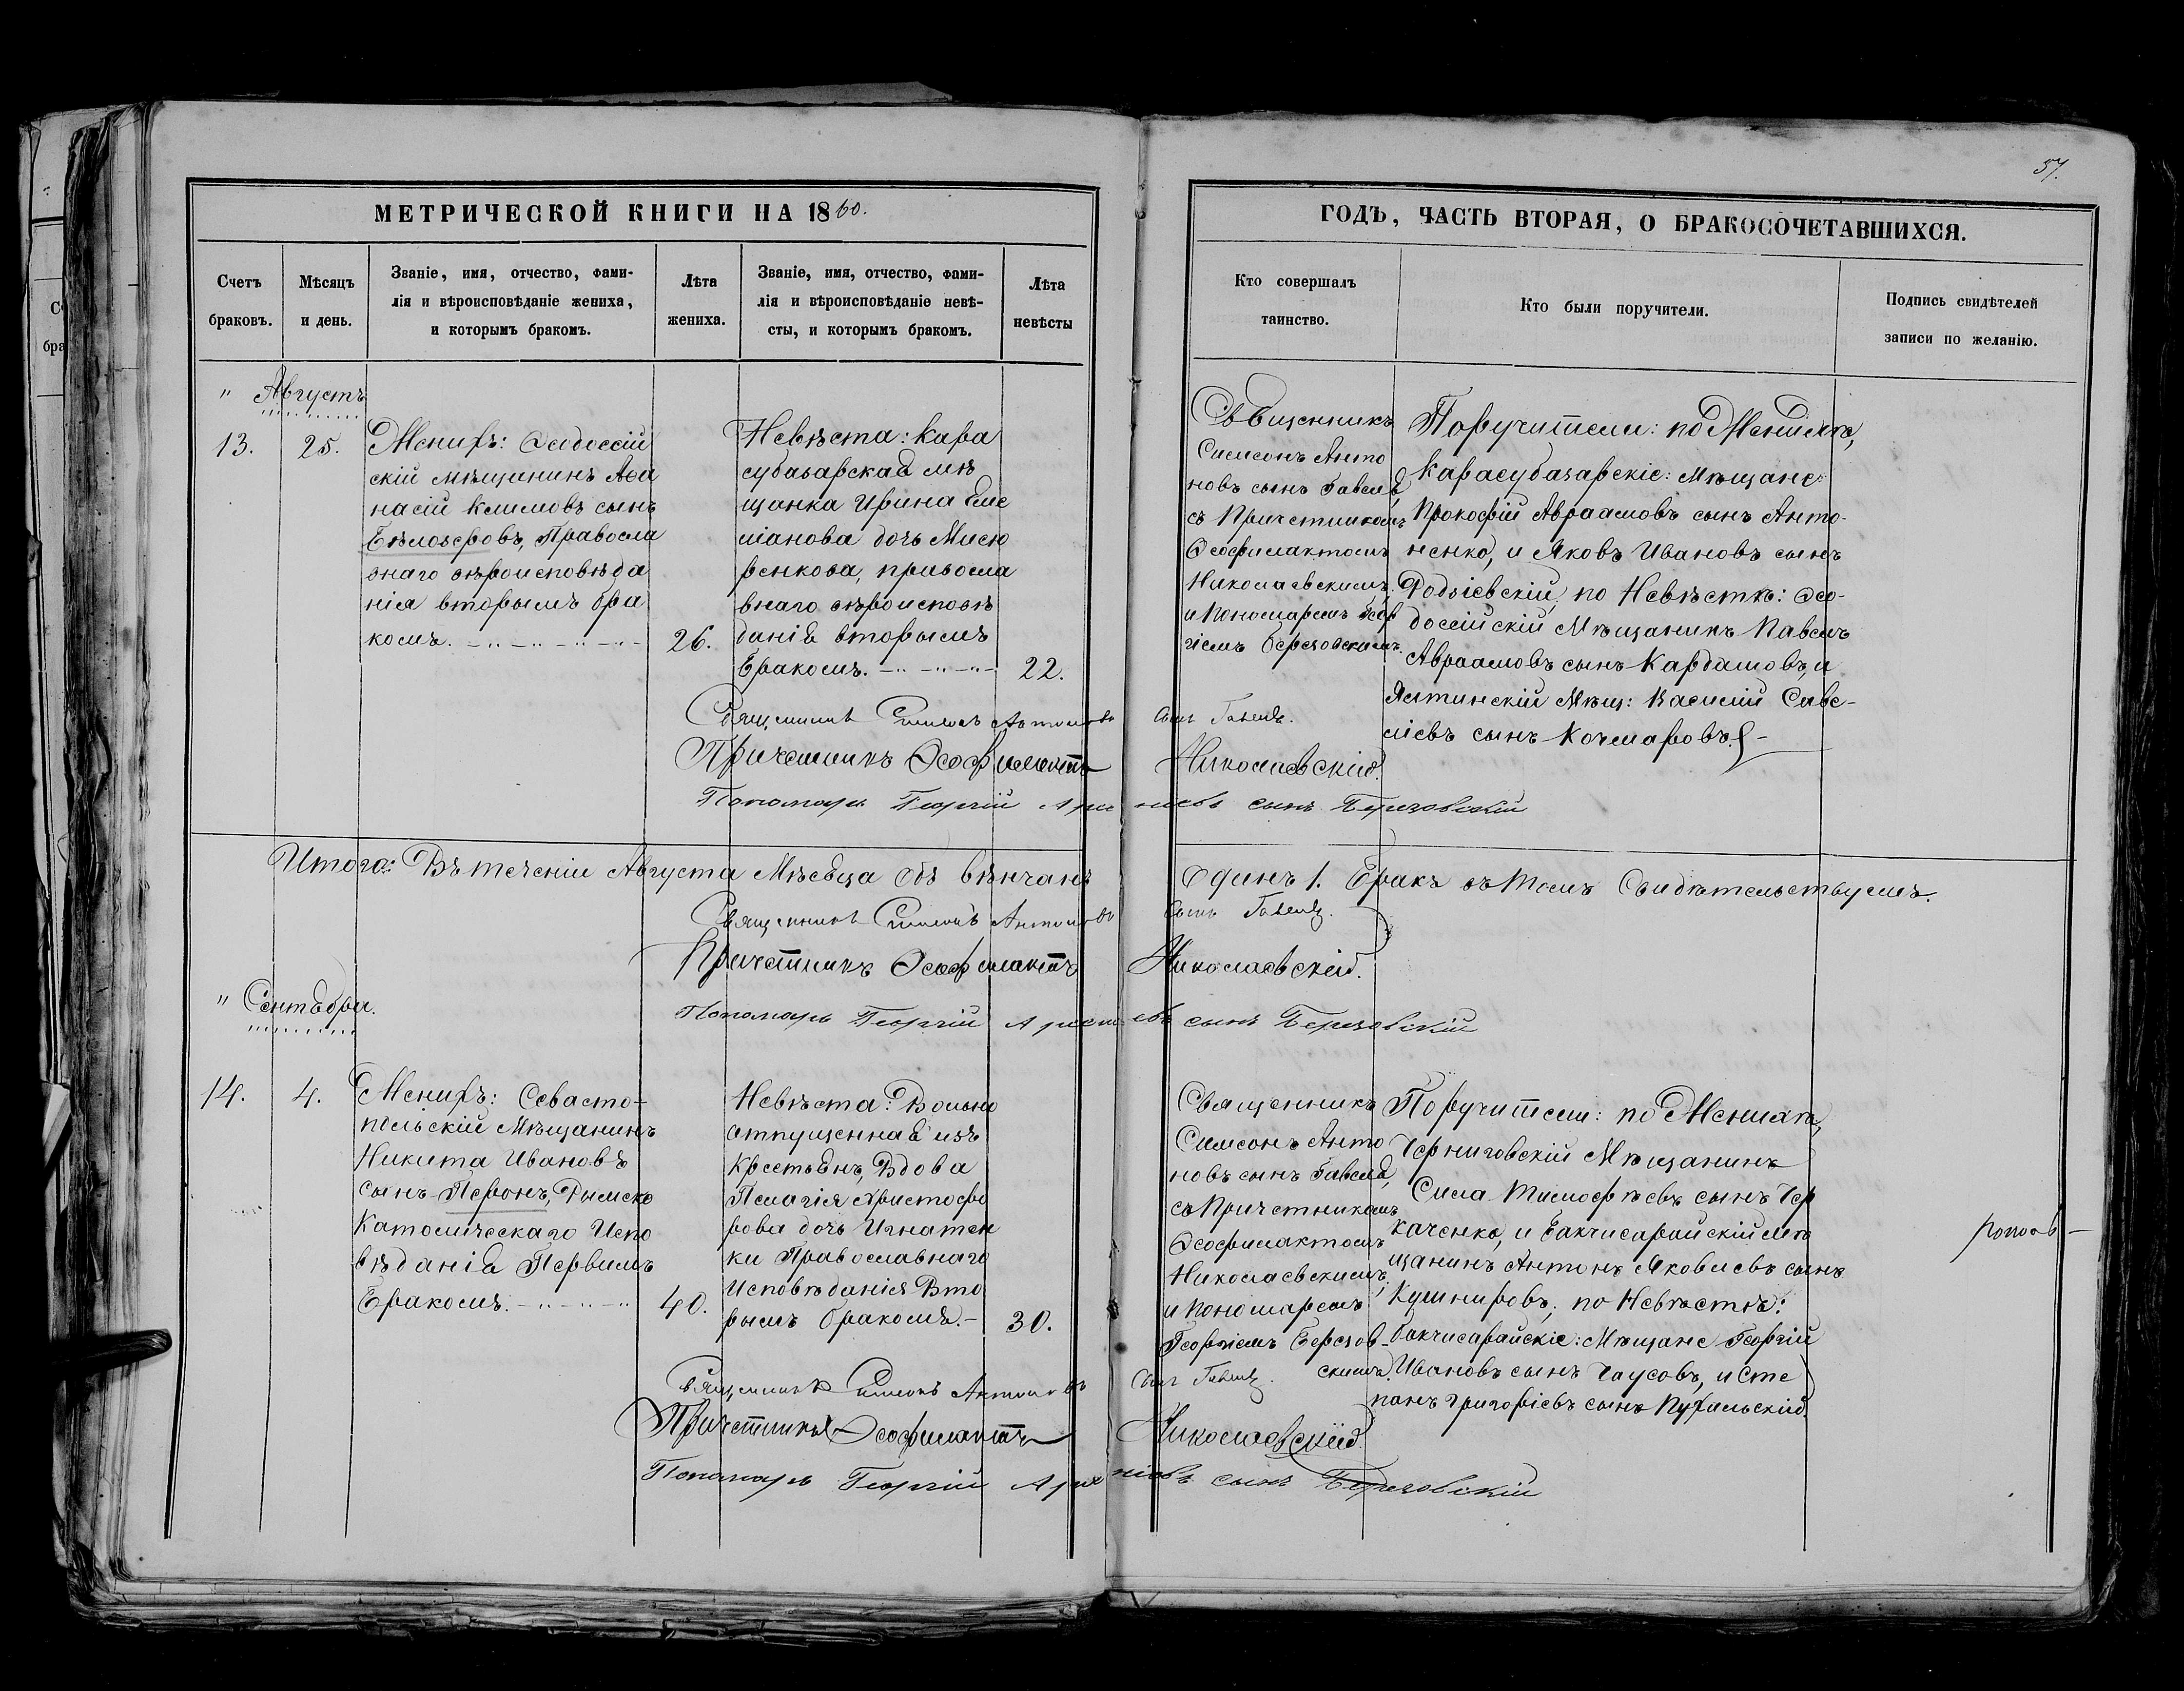 57.
МЕТРИЧЕСКОЙ КНИГИ НА 1860.
Счетъ браковъ.
Мѣсяцъ и день.
Званіе, имя, отчество, фами-
лія и вѣроисповѣданіе жениха,
и которымъ бракомъ.
Лѣта жениха.
Званіе, имя, отчество, фами-
лія и вѣроисповѣданіе невѣ-
сты, и которымъ бракомъ.
Лѣта невѣсты
" Августъ
13.
25.
Женихъ: Ѳеодоссій
скій мѣщанинъ Аѳа
насій Климовъ сынъ
Бѣлозеровъ, Правосла
внаго вѣроисповѣда
нія вторымъ бра
комъ.
26.
Невѣста: Кара
субазарская мѣ
щанка Ирина Еме
ліанова дочь Мисю
ренкова, правосла
внаго вѣроисповѣ
данія вторымъ
бракомъ.
22.
ГОДЪ, ЧАСТЬ ВТОРАЯ, О БРАКОСОЧЕТАВШИХСЯ.
Кто совершалъ
таинство.
Кто были поручители.
Подпись свидѣтелей
записи по желанію.
Священникъ
Симеонъ Анто
новъ сынъ
съ Причетникомъ
Ѳеофилактомъ
Николаевскимъ
и Пономаремъ Геор
гіемъ Березовскимъ.
Поручители: по Женихѣ,
Карасубазарскіе: Мѣщане
Прокофій Авраамовъ сынъ Анто-
ненко, и Яковъ Ивановъ сынъ
по Невѣстѣ: Ѳео-
доссійскій Мѣщанинъ Павелъ
Авраамовъ сынъ Кардашовъ, и
Ялтинскій Мѣщ: Василій Саве-
ліевъ сынъ Кочмаровъ.
Священникъ Симеонъ Антоновъ сынъ
Причетникъ Ѳеофилактъ Николаевскій.
Пономарь Георгій сынъ Березовскій
Итого: Въ теченіи Августа Мѣсяца обвѣнчанъ Одинъ 1. Бракъ въ томъ Свидѣтельствуемъ.
Священникъ Симеонъ Антоновъ сынъ
Причетникъ Ѳеофилактъ Николаевскій.
Пономарь Георгій сынъ Березовскій
" Сентября.
14.
4.
Женихъ: Севасто-
польскій Мѣщанинъ
Никита Ивановъ
сынъ Перонъ, Римско
Католическаго Испо
вѣданія Первымъ
Бракомъ.
40.
Невѣста: Вольно
отпущенная изъ
Крестьянъ, Вдова
Пелагія Христофо
рова дочь Игнатен
ки Православнаго
Исповѣданія Вто
рымъ бракомъ.-
30.
Священникъ
Симеонъ Анто
новъ сынъ
съ Причетникомъ
Ѳеофилактомъ
Николаевскимъ,
и Пономаремъ
Георгіемъ Березов-
скимъ.
Поручители: по Женихѣ,
Черниговскій Мѣщанинъ
Сила Тимофѣевъ сынъ Чер
каченко, и Бакчисарайскій мѣ
щанинъ Антонъ Яковлевъ сынъ
Кушнировъ, по Невѣстѣ:
Бакчисарайскіе: Мѣщане Георгій
Ивановъ сынъ Чаусовъ, и Сте
панъ Григорьевъ сынъ
Священникъ Симеонъ Антоновъ сынъ
Причетникъ Ѳеофилактъ Николаевскій.
Пономарь Георгій сынъ Березовскій